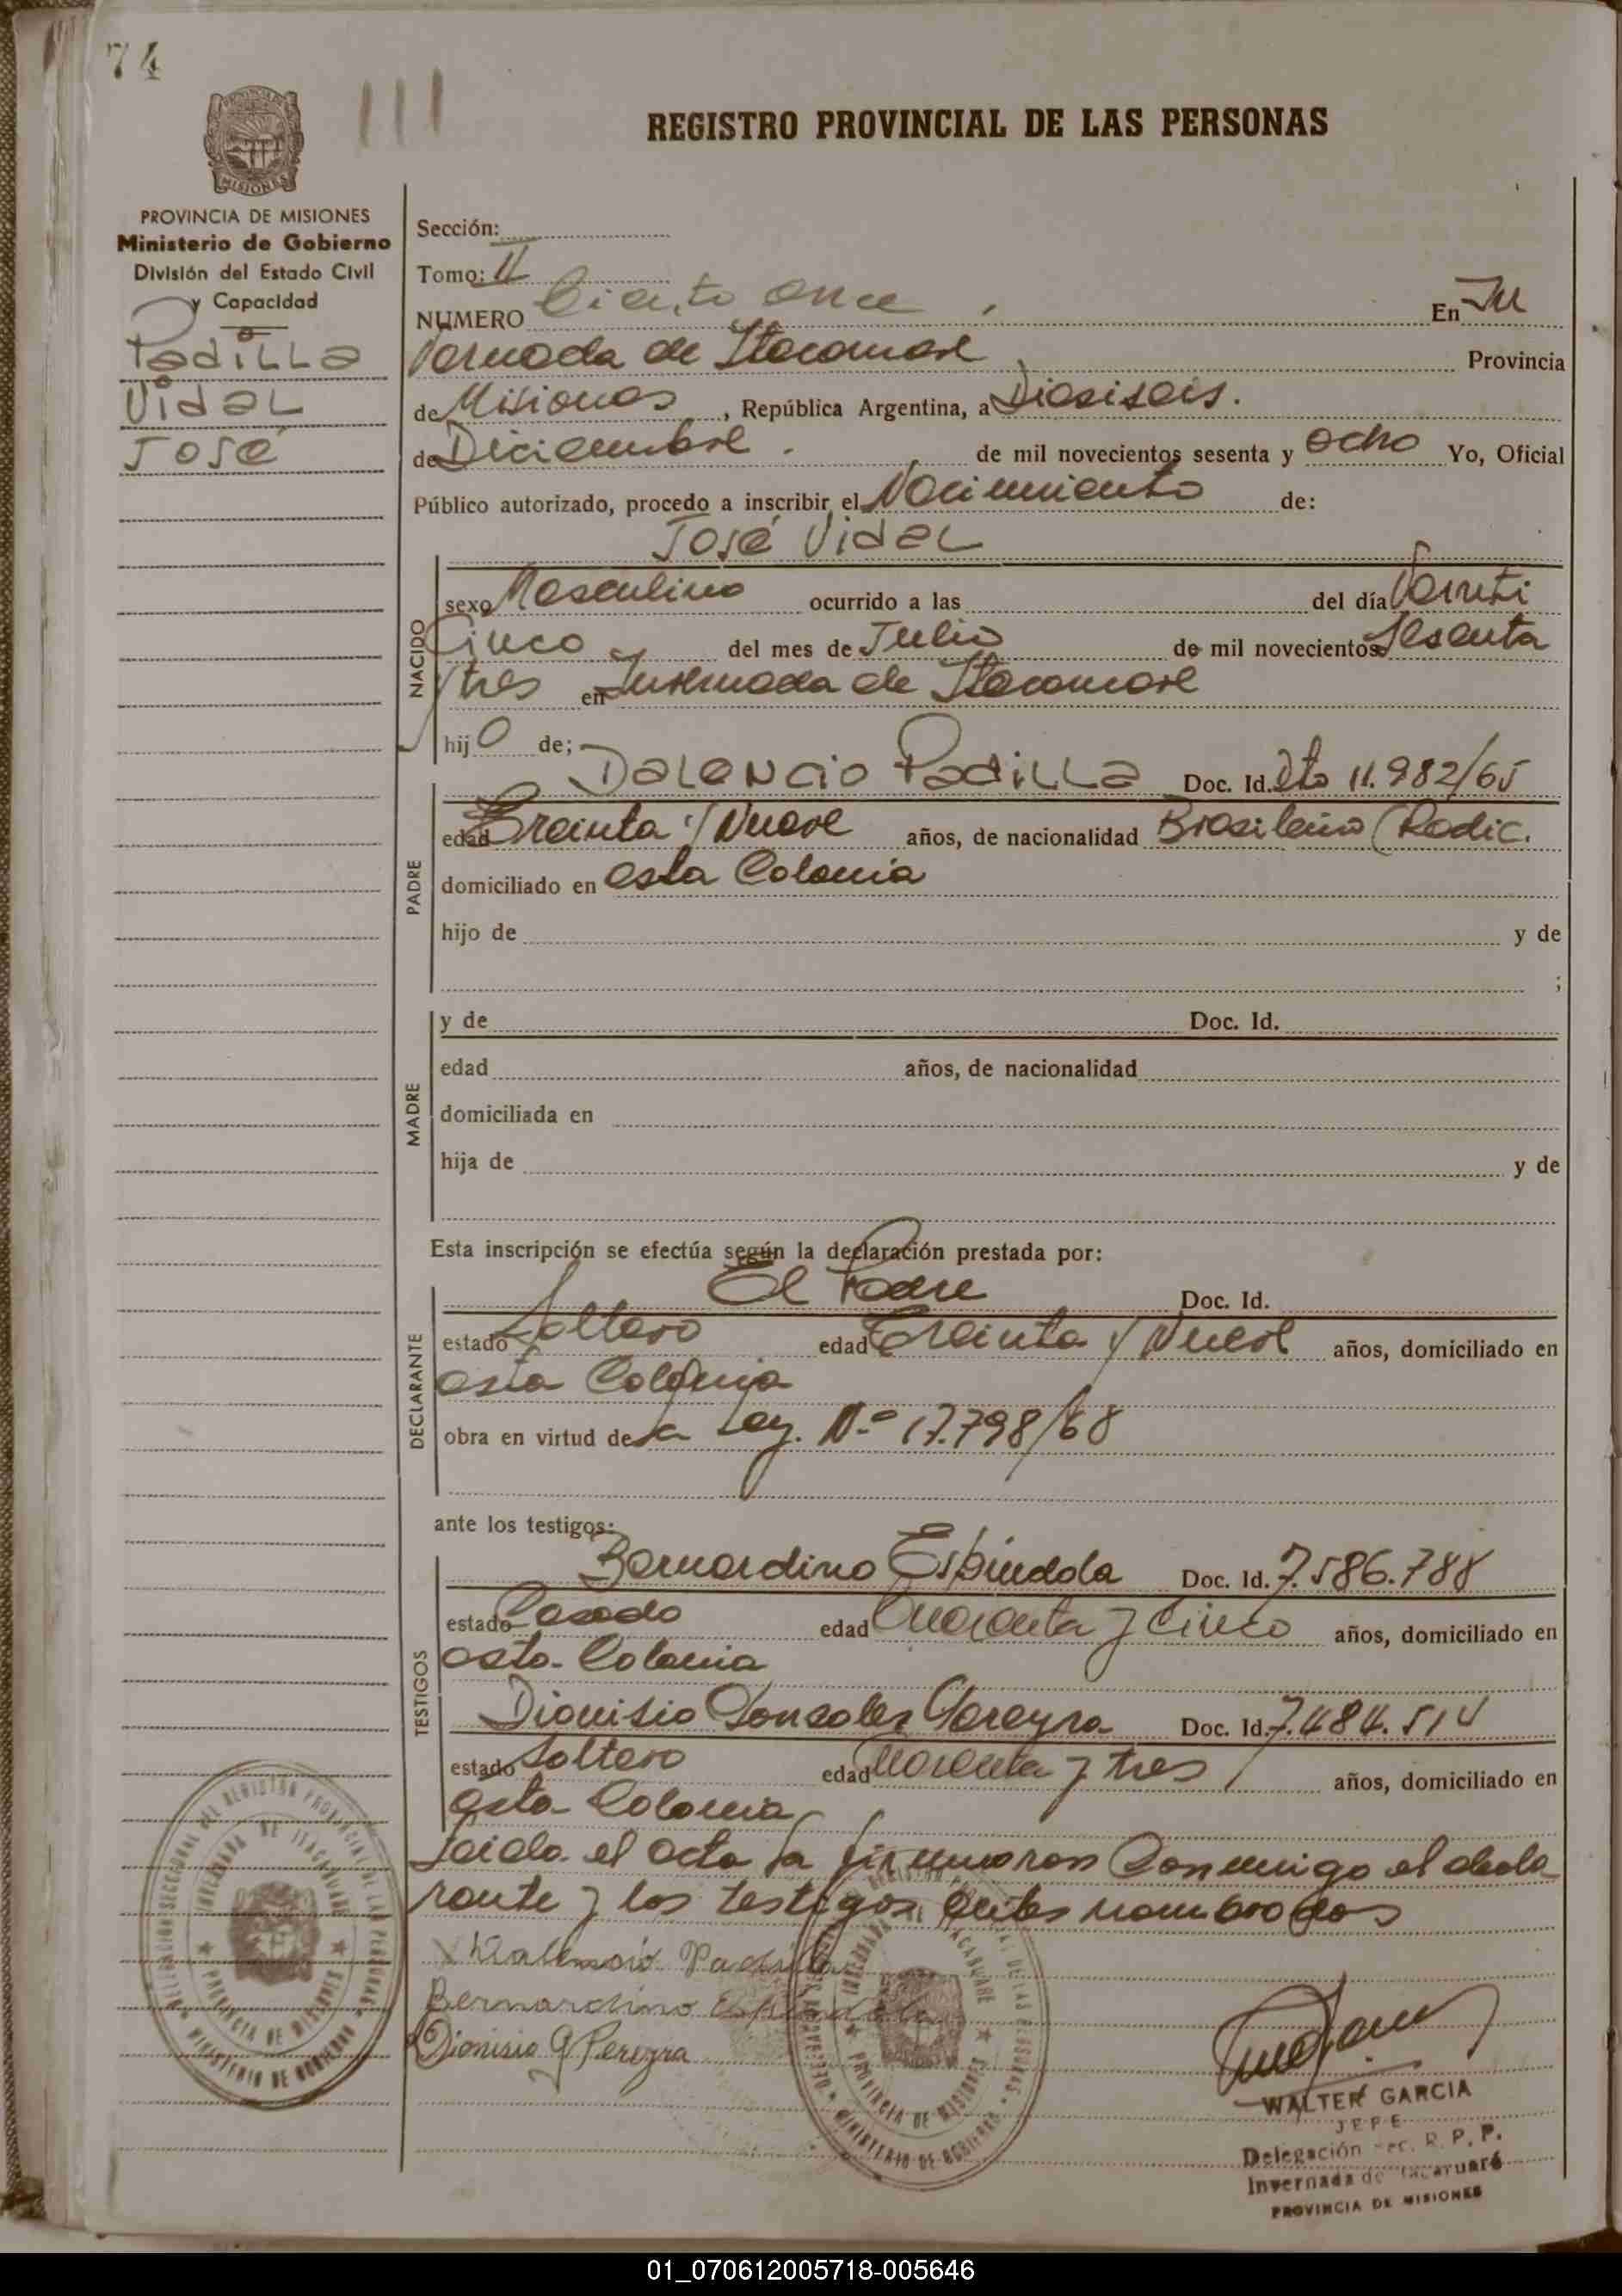 74
111
REGISTRO PROVINCIAL DE LAS PERSONAS
PROVINCIA DE MISIONES
Ministerio de Gobierno
División del Estado Civil
y Capacidad
Padilla
Vidal
José
Sección:
Tomo: II
NUMERO Ciento once En In
vernada de Itacaruaré Provincia
de Misiones, República Argentina, a Dieciseis.
de Diciembre . de mil novecientos sesenta y ocho Yo, Oficial
Público autorizado, procedo a inscribir el Nacimiento de:
José Vidal
NACIDO
sexo Masculino ocurrido a las del día Veinti
Cinco del mes de Julio de mil novecientos Sesenta
y tres en Invernada de Itacaruaré
hijo de;
Dalencio Padilla Doc. Id. Dto 11.982/65
PADRE
edad Treinta y Nueve años, de nacionalidad Brasileño (Radic.
domiciliado en esta Colonia
hijo de y de
;
MADRE
y de Doc. Id.
edad años, de nacionalidad
domiciliada en
hija de y de
Esta inscripción se efectúa según la declaración prestada por:
El Padre Doc. Id.
DECLARANTE
estado Soltero edad Treinta y Nueve años, domiciliado en
esta Colonia
obra en virtud de la Ley. Nº 17.798/68
ante los testigos:
Bernardino Espindola Doc. Id. 7.586.788
TESTIGOS
estado Casado edad Cuarenta y Cinco años, domiciliado en
esta Colonia
Dionisio Gonzalez Pereyra Doc. Id. 7.484.514
estado Soltero edad Cuarenta y tres años, domiciliado en
esta Colonia
Leida el acta la firmaron Conmigo el decla
rante y los testigos antes nombrados
Padilla
Bernardino Espindola
Dionisio G Pereyra
DELEGACION SECCIONAL DEL REGISTRO PROVINCIAL DE LAS PERSONAS
INVERNADA DE ITACARUARE
PROVINCIA DE MISIONES
MINISTERIO DE GOBIERNO
WALTER GARCIA
JEFE
Delegación Sec. R. P. P.
Invernada de Itacaruaré
PROVINCIA DE MISIONES
01_070612005718-005646